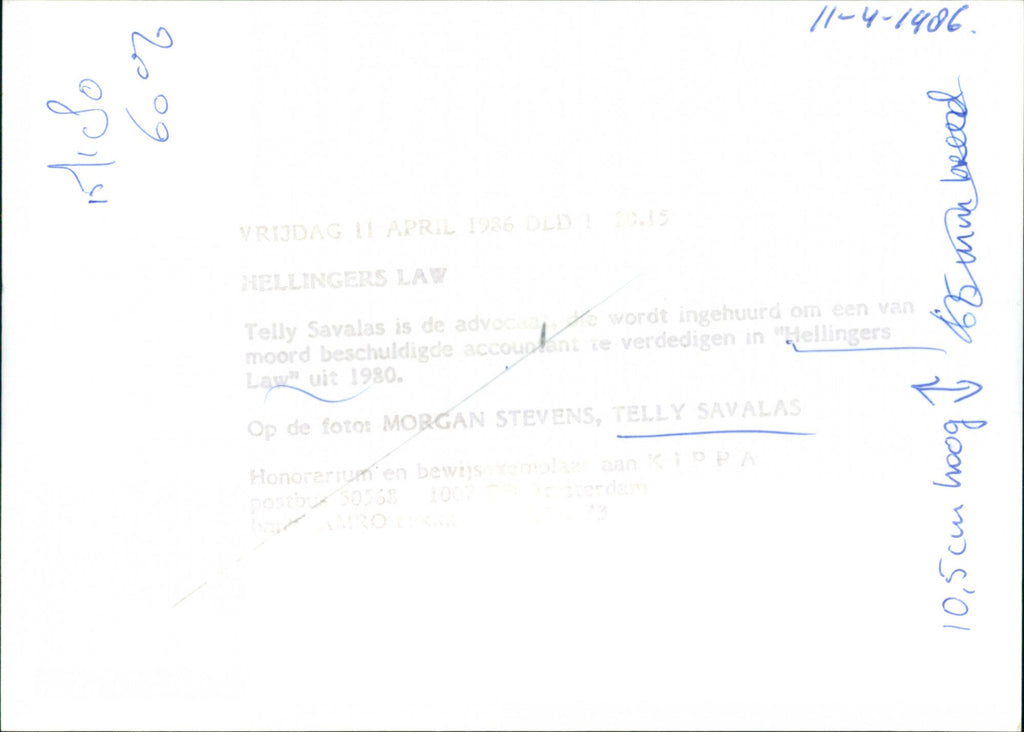 11-4-1986.
60%
VRIJDAG 11 APRIL 1986 DLD 1 20.15
HELLINGERS LAW
Telly Savalas is de advocaat, die wordt ingehuurd om een van
moord beschuldigde accountant te verdedigen in "Hellingers
Law" uit 1980.
Op de foto: MORGAN STEVENS, TELLY SAVALAS
Honorarium en bewijsexemplaar aan K I P P A
postbus 50568 1007 Amsterdam
AMRO
10,5 cm hoog
mm breed